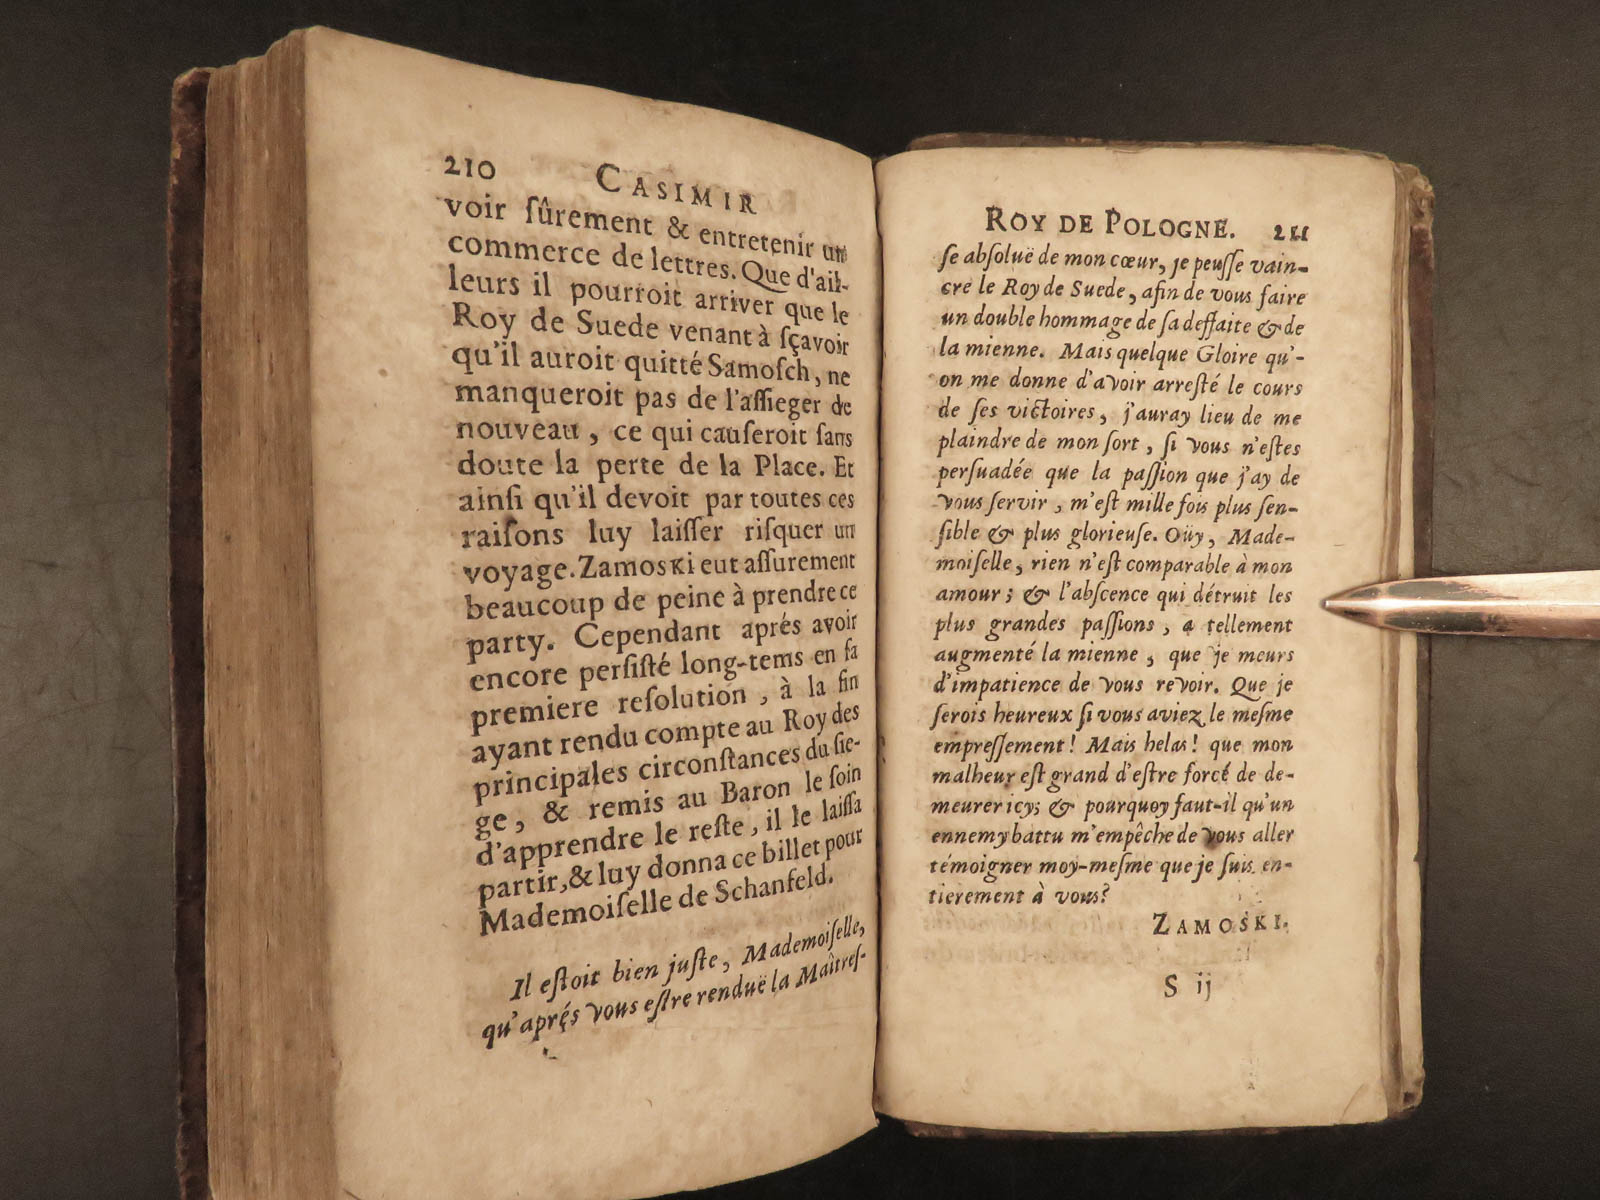 210 CASIMIR
voir ſûrement & entretenir un
commerce de lettres. Que d'ail-
leurs il pourroit arriver que le
Roy de Suede venant à ſçavoir
qu'il auroit quitté Samoſch, ne
manqueroit pas de l'aſſieger de
nouveau, ce qui cauſeroit ſans
doute la perte de la Place. Et
ainſi qu'il devoit par toutes ces
raiſons luy laiſſer riſquer un
voyage. Zamoski eut aſſurement
beaucoup de peine à prendre ce
party. Cependant aprés avoir
encore perſiſté long-tems en ſa
premiere reſolution, à la fin
ayant rendu compte au Roy des
principales circonſtances du ſie-
ge, & remis au Baron le ſoin
d'apprendre le reſte, il le laiſſa
partir, & luy donna ce billet pour
Mademoiſelle de Schanfeld.
Il eſtoit bien juſte, Mademoiſelle,
qu'aprés vous eſtre renduë la Maîtreſ-
ROY DE POLOGNE. 211
ſe abſoluë de mon cœur, je peuſſe vain-
cre le Roy de Suede, afin de vous faire
un double hommage de ſa deffaite & de
la mienne. Mais quelque Gloire qu'-
on me donne d'avoir arreſté le cours
de ſes victoires, j'auray lieu de me
plaindre de mon ſort, ſi vous n'eſtes
perſuadée que la paſſion que j'ay de
vous ſervir, m'eſt mille fois plus ſen-
ſible & plus glorieuſe. Oüy, Made-
moiſelle, rien n'eſt comparable à mon
amour; & l'abſcence qui détruit les
plus grandes paſſions, a tellement
augmenté la mienne, que je meurs
d'impatience de vous revoir. Que je
ſerois heureux ſi vous aviez le meſme
empreſſement! Mais helas! que mon
malheur eſt grand d'eſtre forcé de de-
meurer icy; & pourquoy faut-il qu'un
ennemy battu m'empêche de vous aller
témoigner moy-meſme que je ſuis en-
tierement à vous?
ZAMOSKI.
S ij